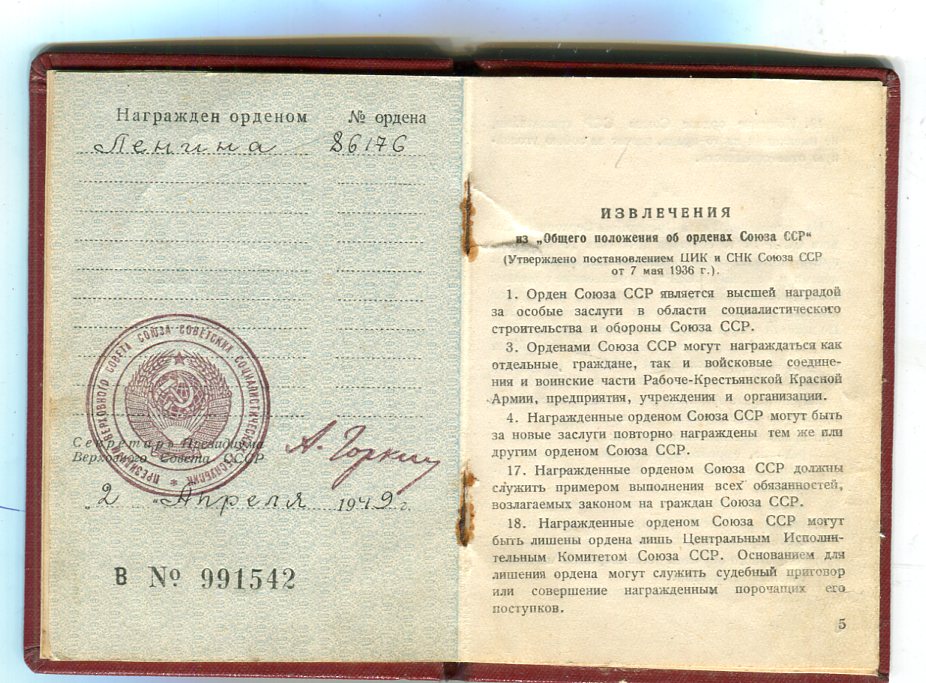 Награжден орденом № ордена
Ленина 86176
ПРЕЗИДИУМ ВЕРХОВНОГО СОВЕТА СОЮЗА СОВЕТСКИХ СОЦИАЛИСТИЧЕСКИХ РЕСПУБЛИК
Секретарь Президиума
Верховного Совета СССР
А. Горкин
„2 “ Апреля 1949 г.
В № 991542
ИЗВЛЕЧЕНИЯ
из „Общего положения об орденах Союза ССР“
(Утверждено постановлением ЦИК и СНК Союза ССР
от 7 мая 1936 г.).
1. Орден Союза ССР является высшей наградой
за особые заслуги в области социалистического
строительства и обороны Союза ССР.
3. Орденами Союза ССР могут награждаться как
отдельные граждане, так и войсковые соедине-
ния и воинские части Рабоче-Крестьянской Красной
Армии, предприятия, учреждения и организации.
4. Награжденные орденом Союза ССР могут быть
за новые заслуги повторно награждены тем же или
другим орденом Союза ССР.
17. Награжденные орденом Союза ССР должны
служить примером выполнения всех обязанностей,
возлагаемых законом на граждан Союза ССР.
18. Награжденные орденом Союза ССР могут
быть лишены ордена лишь Центральным Исполни-
тельным Комитетом Союза ССР. Основанием для
лишения ордена могут служить судебный приговор
или совершение награжденным порочащих его
поступков.
5